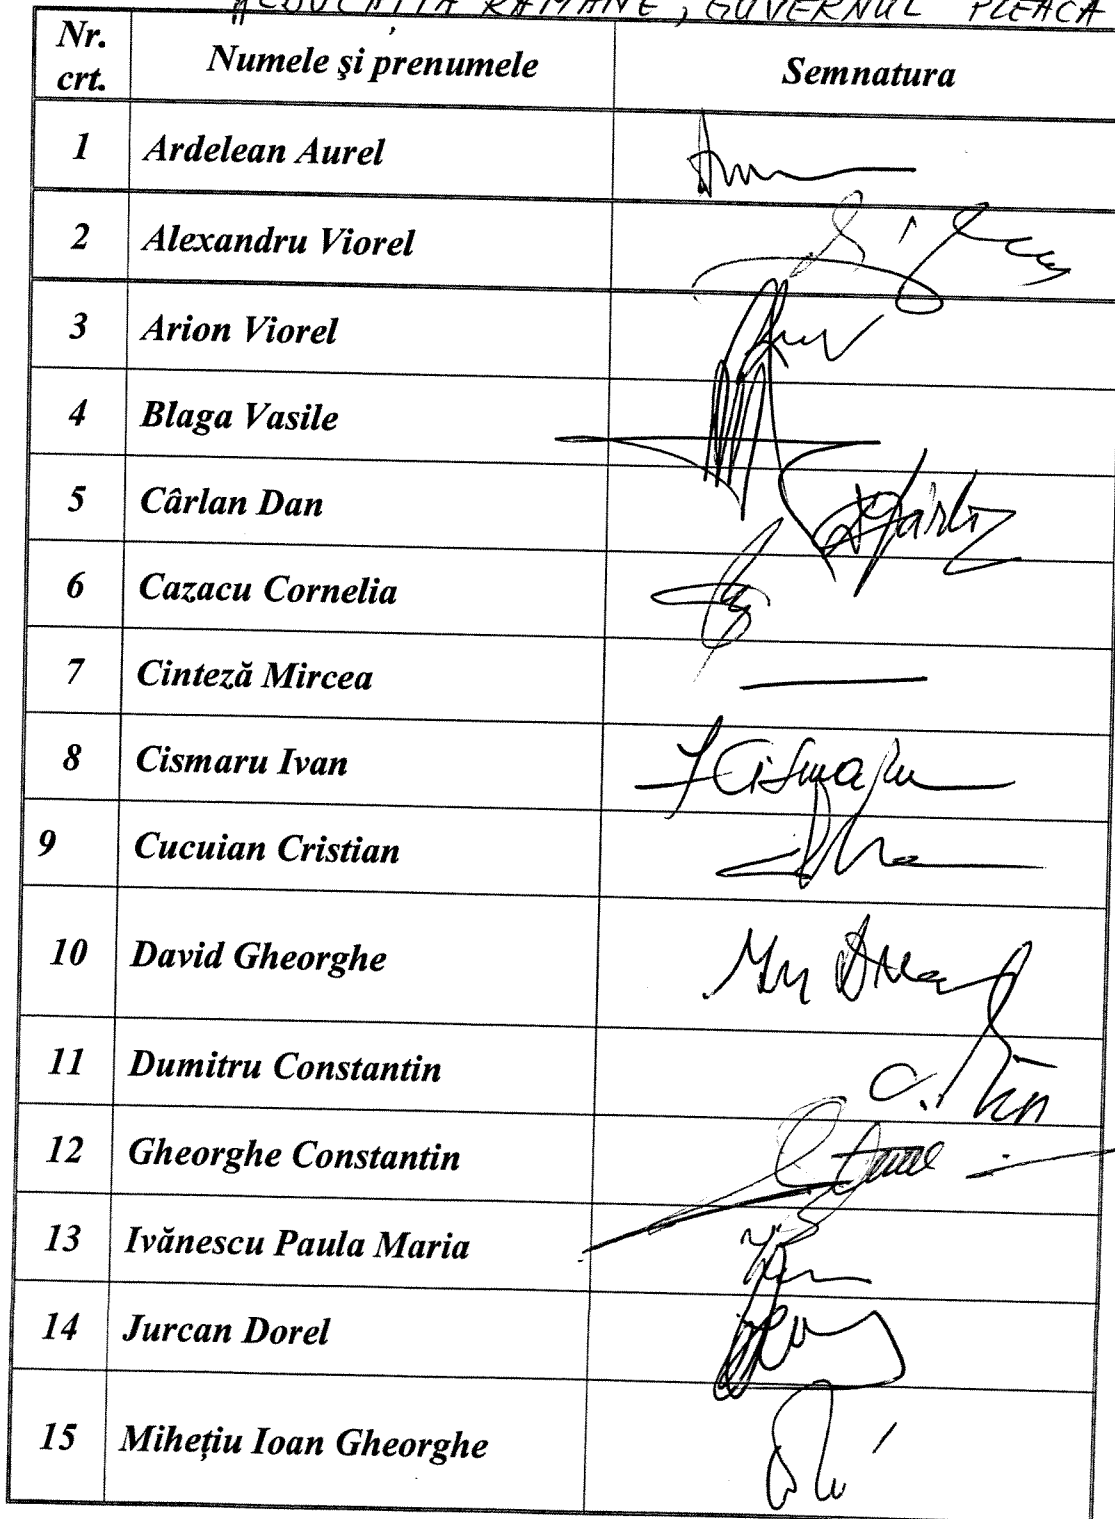 "EDUCAȚIA RĂMÂNE, GUVERNUL PLEACĂ
Nr. crt. Numele şi prenumele Semnatura
1 Ardelean Aurel
2 Alexandru Viorel
3 Arion Viorel
4 Blaga Vasile
5 Cârlan Dan
6 Cazacu Cornelia
7 Cinteză Mircea
8 Cismaru Ivan I Cismaru
9 Cucuian Cristian
10 David Gheorghe
11 Dumitru Constantin
12 Gheorghe Constantin
13 Ivănescu Paula Maria
14 Jurcan Dorel
15 Mihețiu Ioan Gheorghe